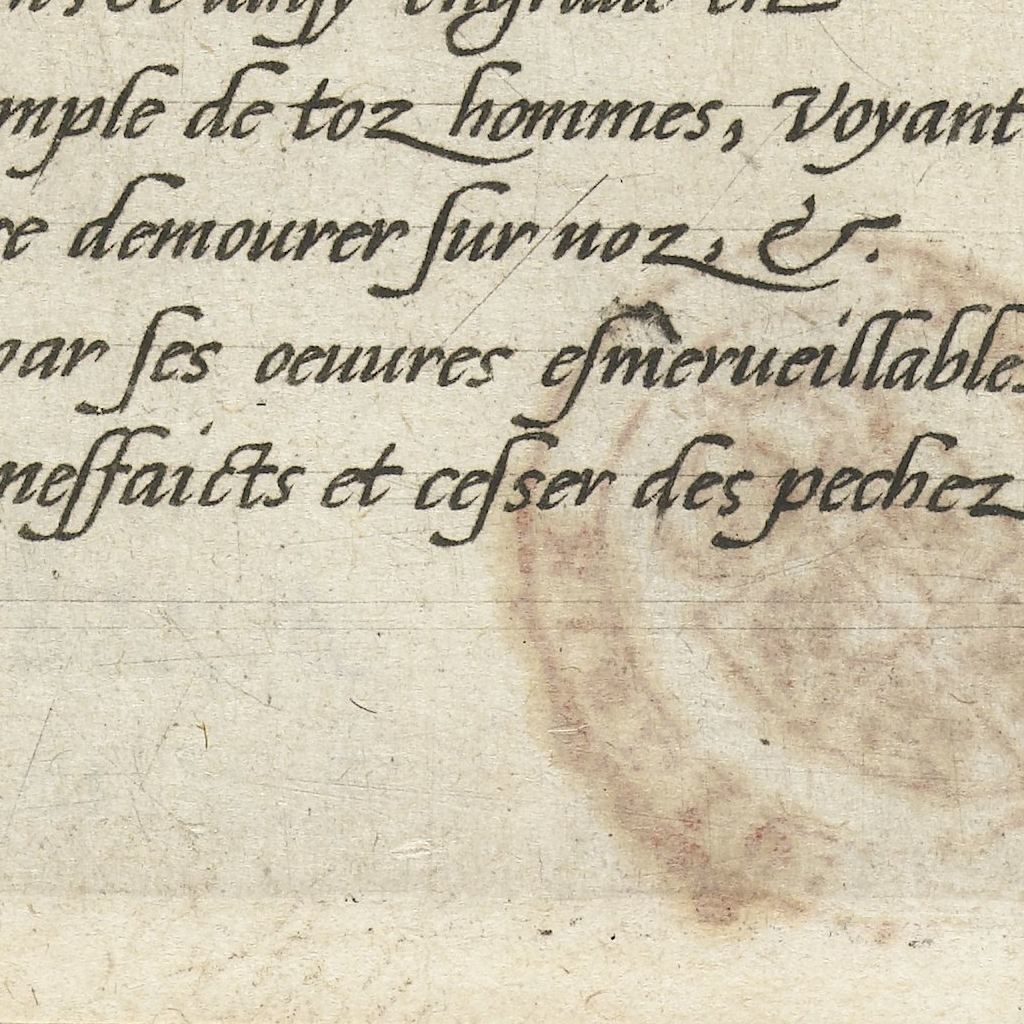 mple de toz hommes, Voyant
re demourer ſur noz, &.
par ſes oeuures eſmerueillables
neffaicts et ceſser des pechez